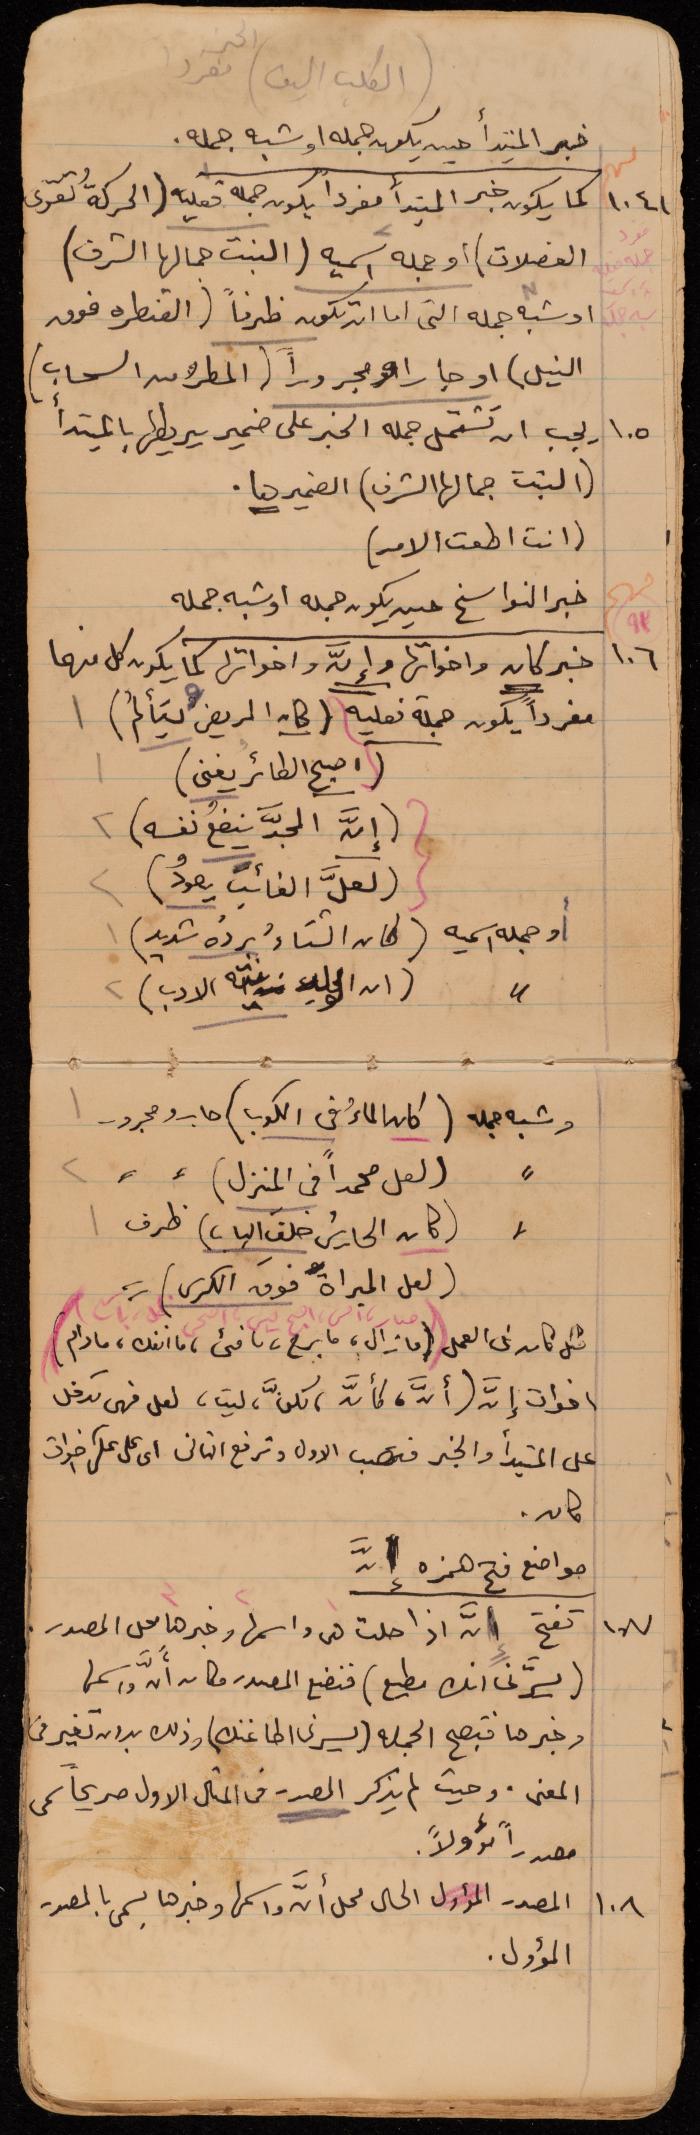 الخبر
(الكلب اليف) مفرد
خبر المبتدأ حين يكون جمله او شبه جمله.
١٠٤ كما يكون خبر المبتدأ مفرداً يكون جمله فعليه (الحركةُ تُقوّى
العضلات) او جمله اسميه (البنت جمالها الشرف)
او شبه جمله التى اما ان تكون ظرفاً (القنطره فوق
النيل) او جارا ومجروراً (المطر من السحاب)
١٠٥ يجب ان تشتمل جمله الخبر على ضمير يربطها بالمبتدأ
(البنت جمالها الشرف) الضمير ها.
(انت اطعت الامر)
خبر النواسخ حين يكون جمله او شبه جمله
٩٣
١٠٦ خبر كان واخواتها وإنَّ واخواتها كما يكون كل منهما
مفرداً يكون جملة فعليه (كان المريض يتألمُ) ١
(اصبح الطائر يغنى) ١
(إنَّ المجدَّ ينفعُ نفسه) ٢
(لعلَّ الغائبَ يعودُ) ٢
أو جمله اسميه (كان الشتاءُ بردُه شديد) ١
〃 (ان الولد زينته الادب) ٢
وشبه جمله (كان الماءُ فى الكوب) جار ومجرور ١
〃 (لعل محمداً فى المنزل) 〃 〃 ٢
〃 (كان الحارسُ خلفَ الباب) ظرف ١
(لعل المبراةَ فوقَ الكرسى) 〃
صار، امسى، اصبح، ليس، اضحى، ظل، بات
مثل كان فى العمل (مازال، ما برح، ما فتئ، ما انفك، مادام)
اخوات إنَّ (أنَّ، كأنَّ، لكنَّ، ليت، لعل فهى تدخل
على المبتدأ والخبر فتنصب الاول وترفع الثانى اى على عكس اخوات
كان.
مواضع فتح همزه إنَّ
١٠٧ تفتح إنَّ اذا حلت هى واسمها وخبرها محل المصدر.
(يسرُّنى انك مطيع) فنضع المصدر مكان أنَّ واسمها
وخبرها فتصبح الجمله (يسرنى اطاعتك) وذلك بدون تغير فى
المعنى. وحيث لم يذكر المصدر فى المثال الاول صريحاً سمى
مصدراً مؤولاً.
١٠٨ المصدر المؤول الحال محل أنَّ واسمها وخبرها يسمى بالمصدر
المؤول.